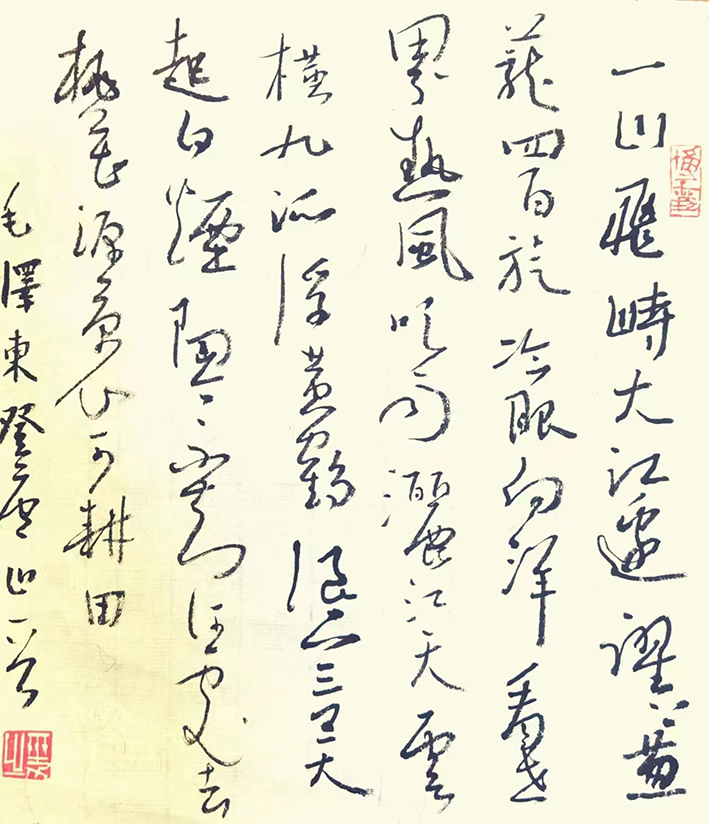 一山飛峙大江邊躍上蔥
蘢四百旋冷眼向洋看世
界熱風吹雨灑江天雲
橫九派浮黃鶴浪下三吳
起白煙陶令不知何處去
桃花源裏可耕田
毛澤東登廬山一首